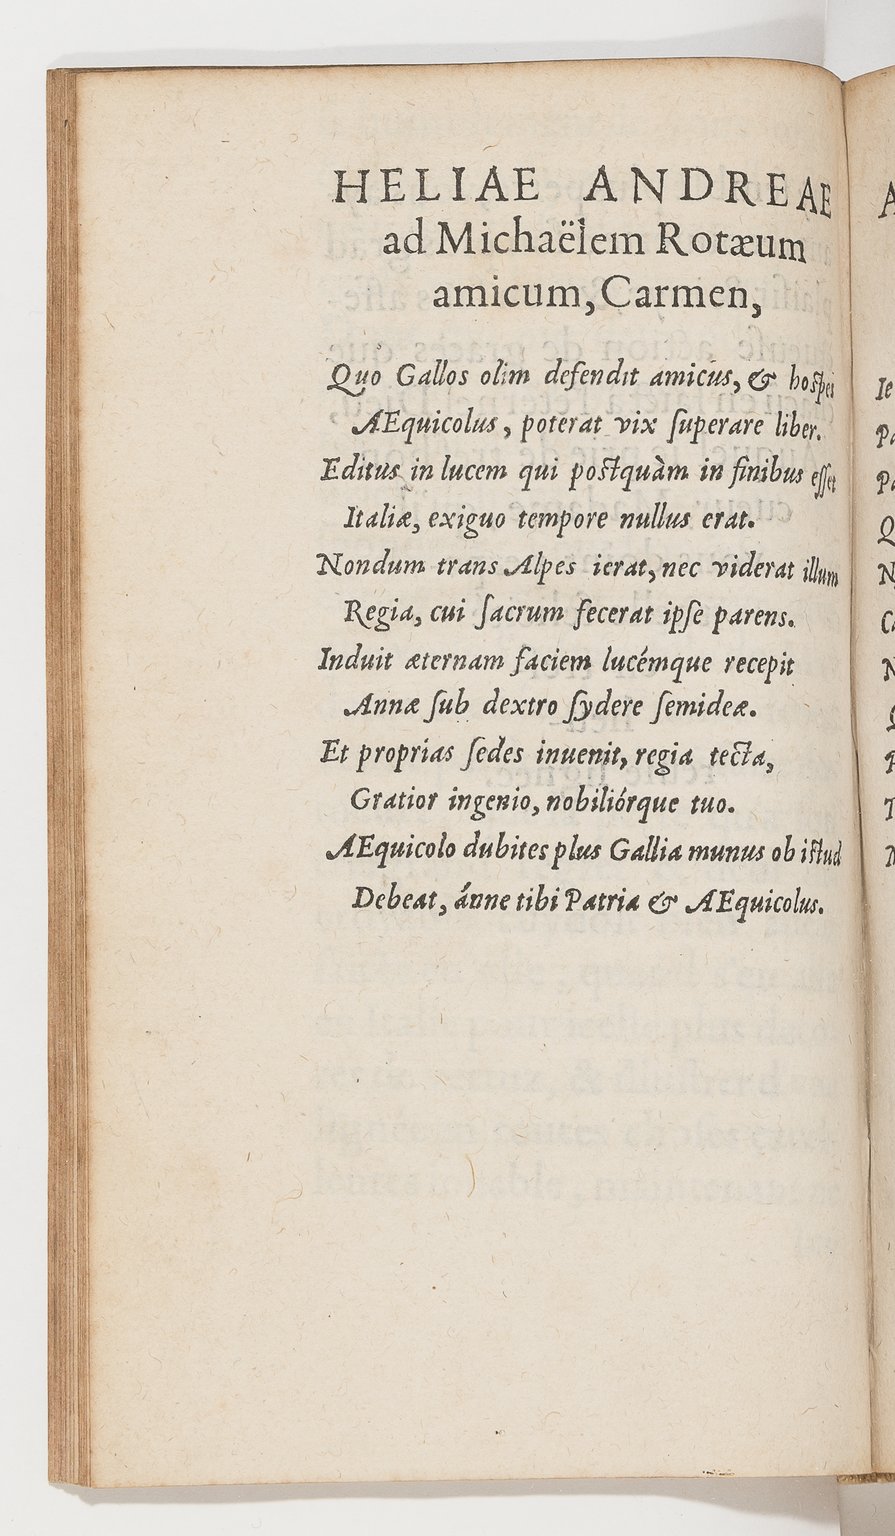 HELIAE ANDREAE
ad Michaëlem Rotæum
amicum, Carmen,
Quo Gallos olim defendit amicus, & hospes
AEquicolus, poterat vix ſuperare liber.
Editus in lucem qui poſtquàm in finibus eſſet
Italiæ, exiguo tempore nullus erat.
Nondum trans Alpes ierat, nec viderat illum
Regia, cui ſacrum fecerat ipſe parens.
Induit æternam faciem lucémque recepit
Annæ ſub dextro ſydere ſemideæ.
Et proprias ſedes inuenit, regia tecta,
Gratior ingenio, nobiliórque tuo.
AEquicolo dubites plus Gallia munus ob iſtud
Debeat, ánne tibi Patria & AEquicolus.
A
Ie
Pa
Pa
Q
N
N